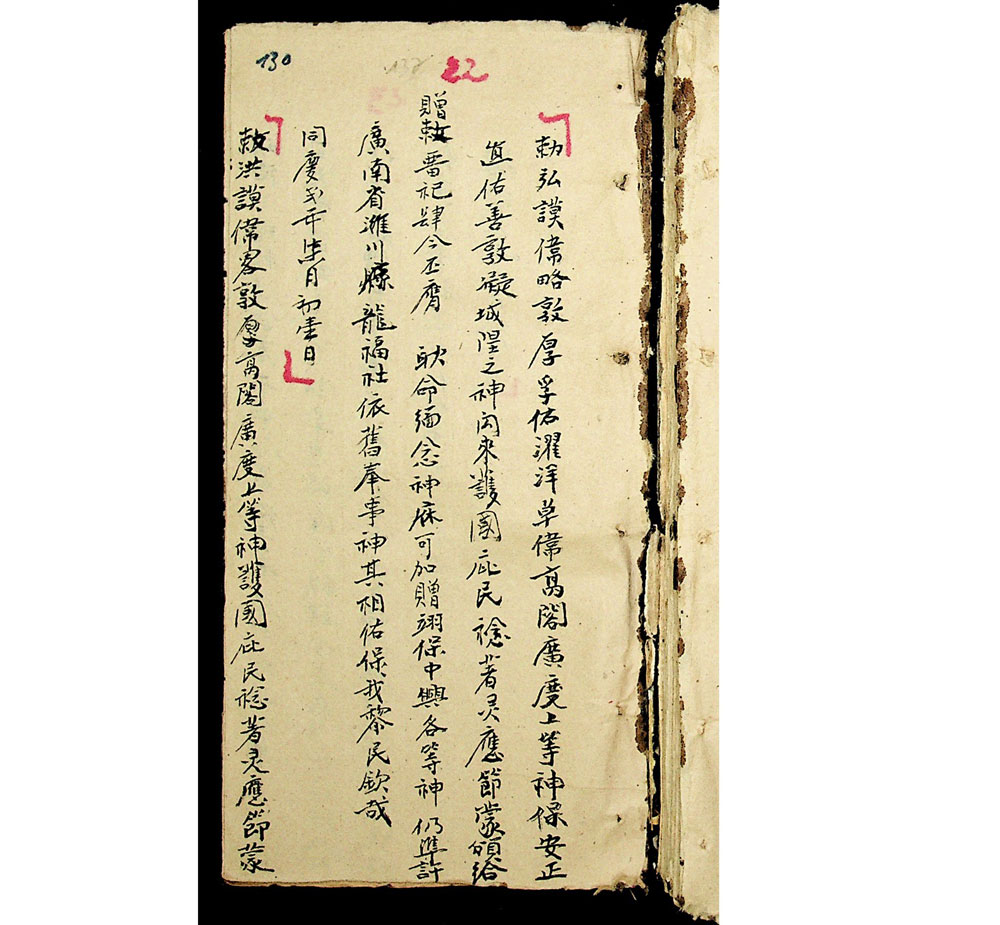 130
22
勅弘謨偉略敦厚孚佑濯洋卓偉高閣廣度上等神保安正
直佑善敦凝城隍之神向來護國庇民稔著灵應節蒙頒給
贈敕晋祀肆今丕膺 耿命緬念神庥可加贈翊保中興各等神仍準許
廣南省濰川縣龍福社依舊奉事神其相佑保我黎民欽哉
同慶弍年柒月初壹日
敕洪謨偉畧敦厚高閣廣度上等神護國庇民稔著灵應節蒙